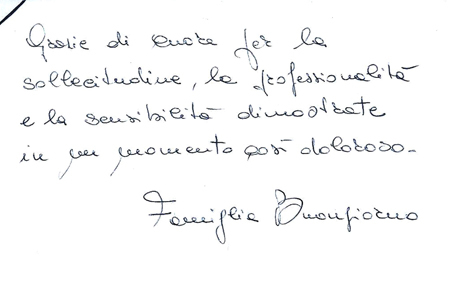 Grazie di cuore per la
sollecitudine, la professionalità
e la sensibilità dimostrate
in un momento così doloroso.
Famiglia Buongiorno